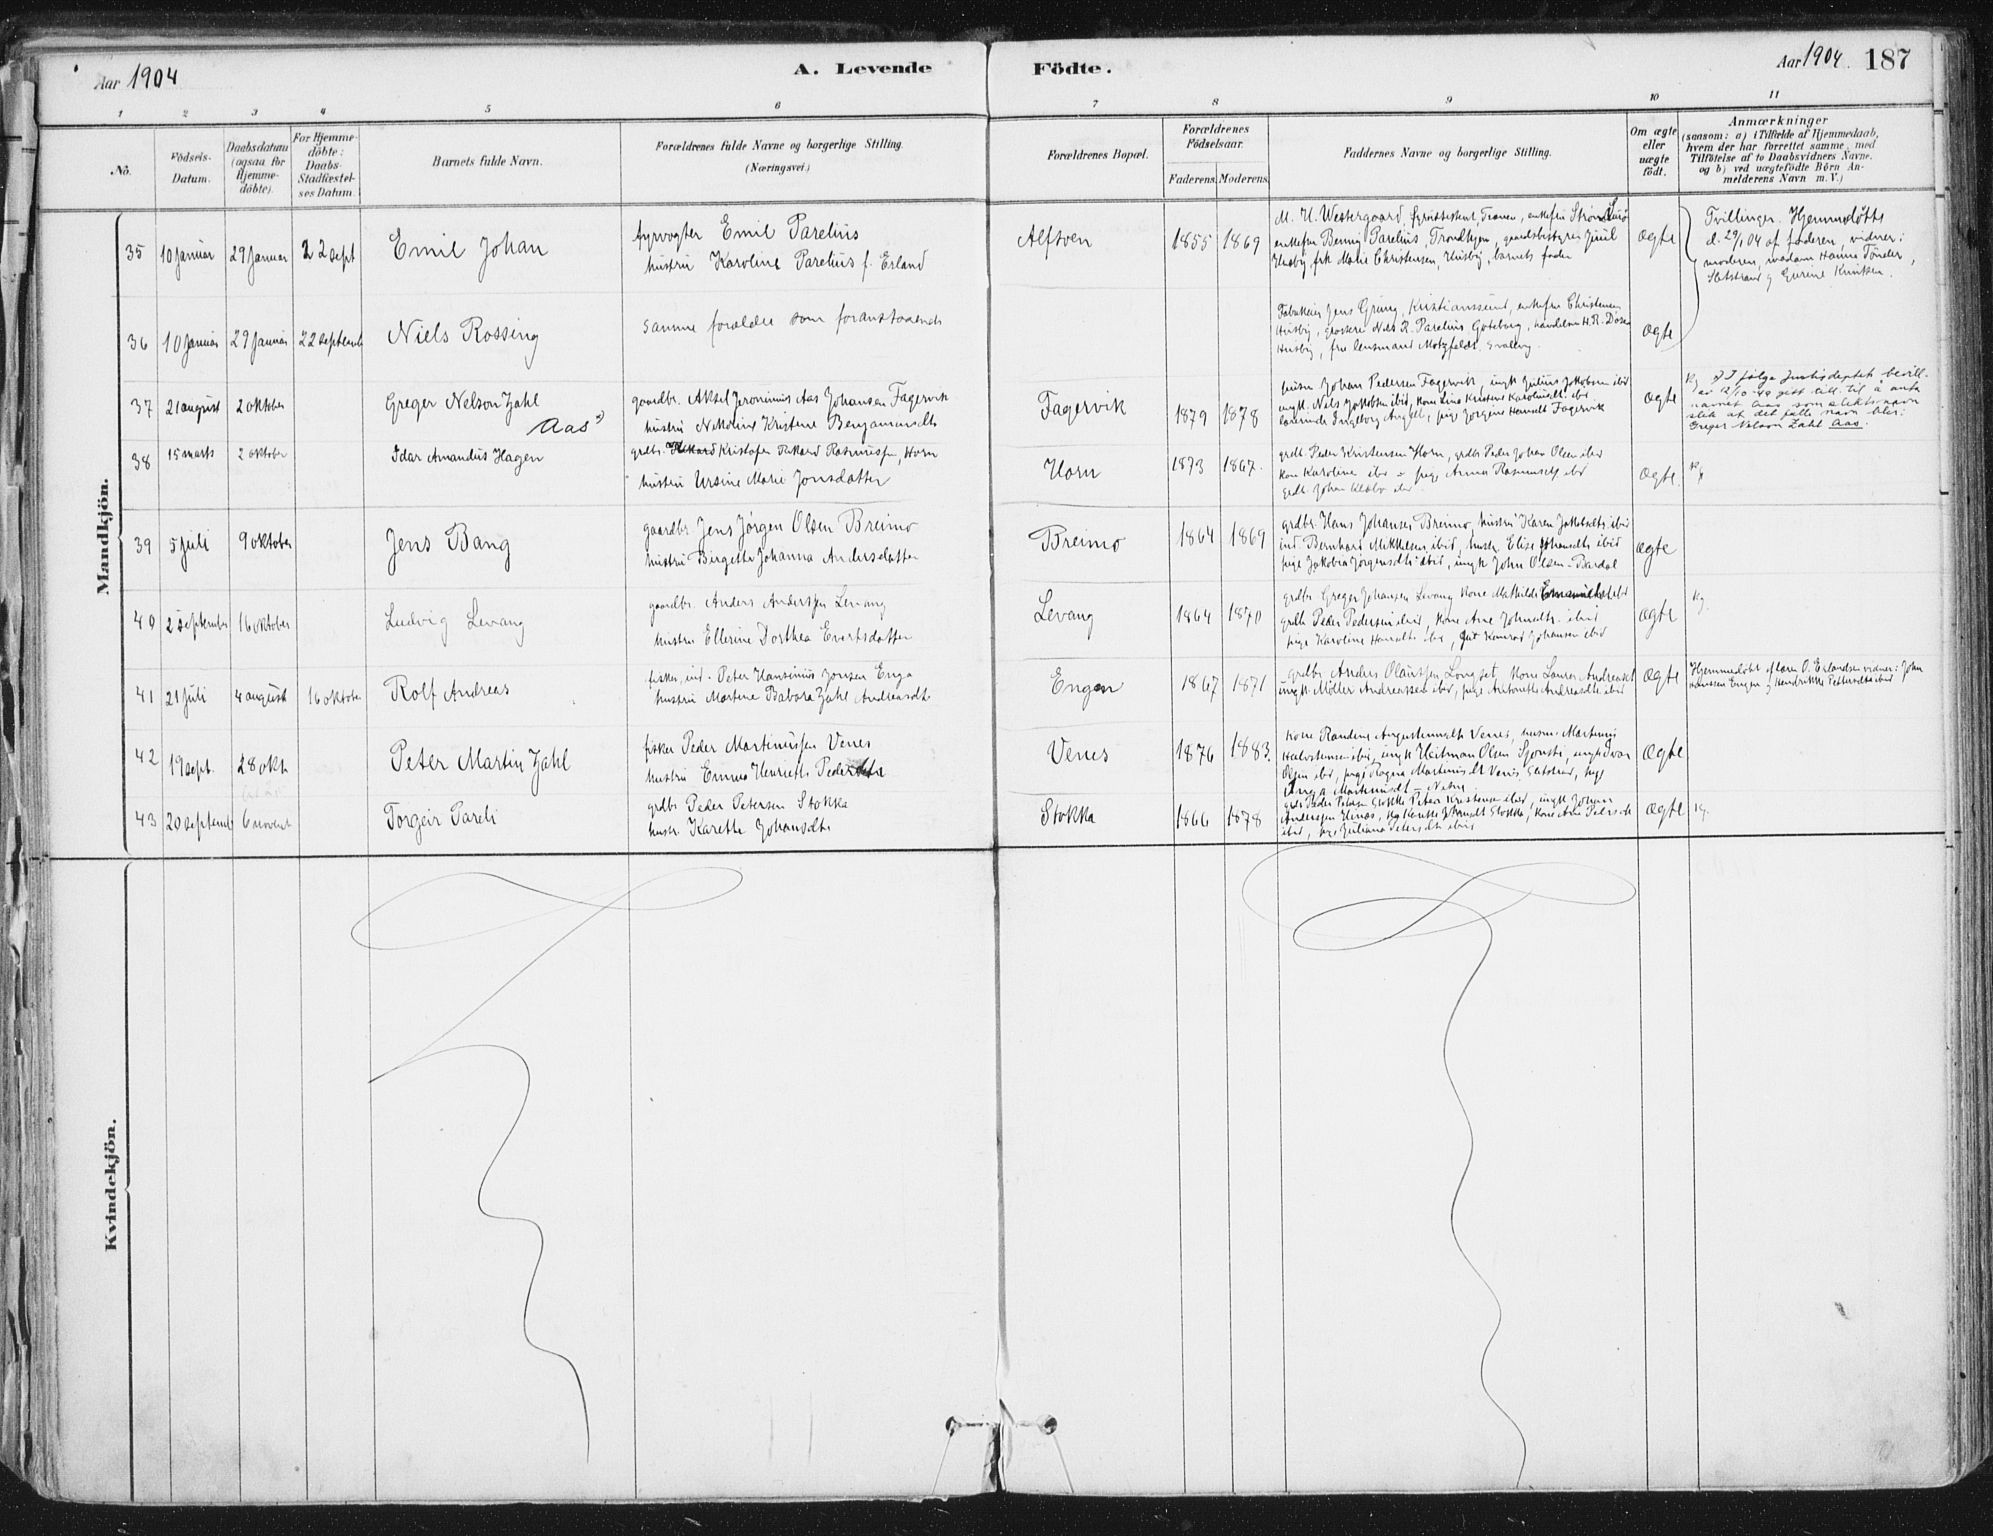 Aar 1904
A. Levende
Födte.
Aar 1904. 187
1 2 3 4 5 6 7 8 9 10 11
No.
Födsels-
Datum.
Daabsdatum
(ogsaa for
Hjemme-
döbte).
For Hjemme-
döbte:
Daabs-
Stadfæstel-
ses Datum.
Barnets fulde Navn.
Forældrenes fulde Navne og borgerlige Stilling.
(Næringsvei.)
Forældrenes Bopæl.
Forældrenes
Födselsaar.
Faderens. Moderens.
Faddernes Navne og borgerlige Stilling.
Om ægte
eller
uægte
födt.
Anmærkninger
(saasom: a) i Tilfælde af Hjemmedaab,
hvem der har forrettet samme, med
Tilföielse af to Daabsvidners Navne,
og b) ved uægtefödte Börn An-
melderens Navn m. V.)
Mandkjön.
35 10 januar 29 januar 22 sept Emil Johan
fyrvogter Emil Parelius
hustru Karoline Parelius f. Erland
Alfsven 1855 1869
M. U. Westergaard, fyrassistent, Trænen, enkefru
enkefru Benny Parelius, Trondhjem, gaardsbestyrer Juul
Husby, frk Marie Christensen, Husby, barnets fader
ægte
Tvillinger. Hjemmedøbte
d. 29/1 04 af faderen, vidner:
moderen, madam Hanna Tønder,
Slotstrand og Gurine Knutsen.
36 10 januar 29 januar 22 september Niels Rossing
samme forældre som foranstaaende
Jens Grung, Kristianssund, enkefru Christensen
Husby, grosserer Nils R. Parelius, Gøteborg, H. R.
Husby, fru lensmand Motzfeldt,
ægte
37 21 august 2 oktober Greger Nelson Zahl
Aas x)
gaardbr. Aksel Jeronimus Aas Johansen Fagervik
hustru N. Moline Kristine Benjaminsdtr
Fagervik 1879 1878
Johan Pedersen Fagervik, ungk Julius Jakobsen ibid
ungk. Nels Jakobsen ibid, kone Lina Kristine ibid
lærerinde Ingeborg, pige Jørgine Hansdtr Fagervik
ægte
x) I følge Justisdeptet bevill.
av 12/10-49 gitt till. til å anta
navnet Aas som slektsnavn
slik at det fulle navn blir:
Greger Nelson Zahl Aas.
38 15 marts 2 oktober Idar Amandus Hagen
grdbr. Kristofer Rikard Rasmussen, Horn
hustru Ursine Marie Jonsdatter
Horn 1873 1867.
grdb. Peder Kristensen Horn, grdbr Peder Johan Olsen ibid
kone Karoline ibid - pige Anna Rasmusdtr ibid
grdb. Johan
ægte.
39 5 juli 9 oktober Jens Bang
gaardbr. Jens Jørgen Olsen Breimo
hustru Birgitte Johanna Andersdatter
Breimo 1864 1869
grdbr. Hans Johansen Breimo, hustru Karen Jakobsdtr ibid
ind. Bernhard Mikkelsen ibid, hustr. Elise Johansdtr ibid
pige Jakobia Jørgensdtr ibid, ungk John Olsen - Bardal
ægte
40 2 september 16 oktober Ludvig Levang
gaardbr. Anders Andersen Levang
hustru Ellerine Dorthea Evertsdatter
Levang 1864 1870
grdbr Greger Johansen Levang kone Mathilde ibid
grdb Peder Pedersen ibid, kone Ane Johnsdtr. ibid
pige Karoline Hansdtr ibid, gut Konrad Johansen ibid
ægte
41 21 juli 4 august 16 oktober Rolf Andreas
fisker, ind. Peter Hansinus Jonsen Enga
hustru Martine Babara Zahl Andreasdtr
Engen 1867 1871
grdbr Anders Olaussen Longset, kone Laura Andreasdtr
ungk. Møller Andreassen ibid, pige Antonette Andreasdtr ibid
ægte
Hjemmedøbt af lærer O. Erlandsen vidner: John
Hanssen Engen og Hendrikke Pettersdtr ibid
42 19 sept. 28 okt Peter Martin Zahl
fisker Peder Martinussen Venes
hustru Emma Henriette Pedersdtr
Venes 1876 1883.
kone Randine Augustinusdtr Venes, Martinus
Halvorsen ibid, ungk Heitman Olsen Sjonsti, ungk Ivar
Olsen ibid, pige Magna Martinusdtr Venes, pige
Inga Martinusdtr
ægte
43 20 september 6 novembr Torgeir Pareli
grdbr Peder Petersen Stokka
hustr. Karette Johansdtr
Stokka 1866 1878
grdb Peder Petersen Stokka Peter Kristensen ibid, ungk Johan
Andersen Elnæs, pige Karette Johansdtr Stokka, kone Ane Pedersdtr
ibid, pige Juliana Petersdtr ibid
ægte
Kvindekjön.